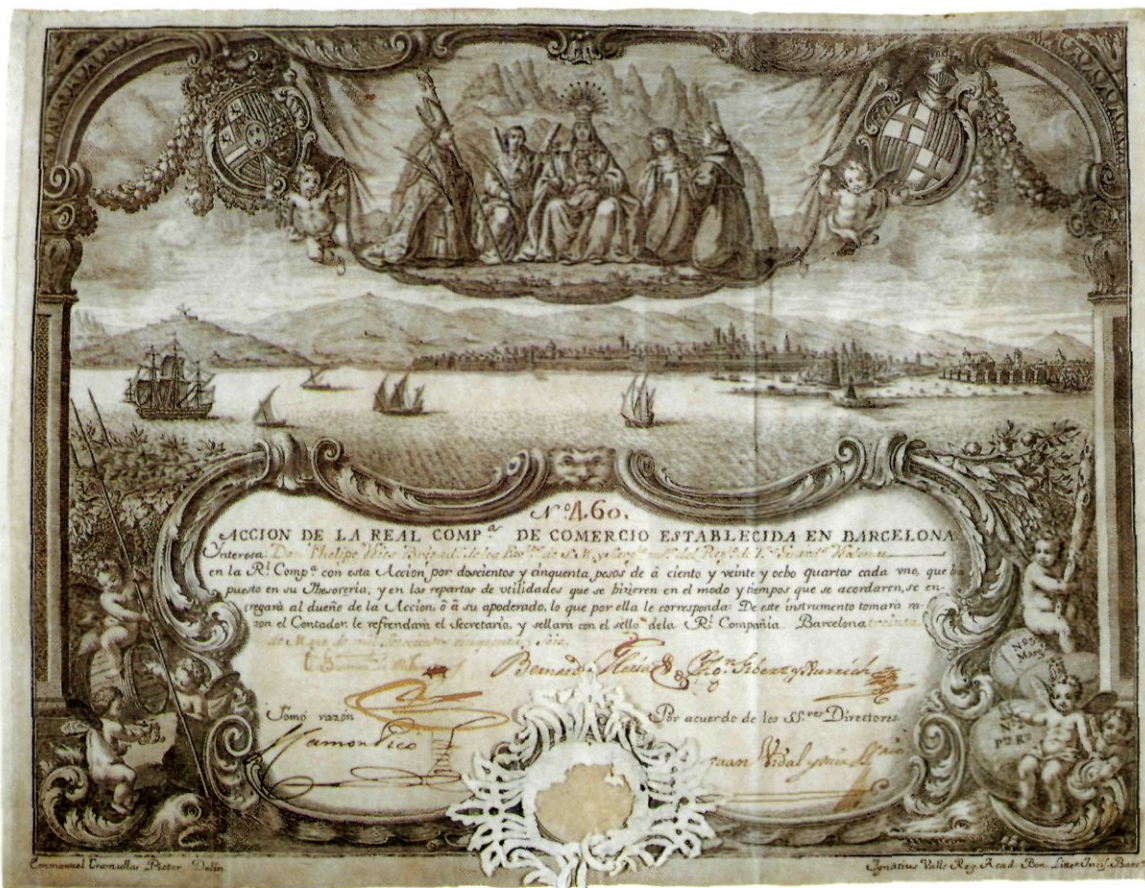 Nº 460.
ACCION DE LA REAL COMPª DE COMERCIO ESTABLECIDA EN BARCELONA
Interesa Don Phelipe
en la Rˡ Compª con esta Accion, por doscientos y cinquenta pesos de à ciento y veinte y ocho quartos cada vno, que ha
puesto en su Thesoreria, y en los repartos de utilidades que se hizieren en el modo y tiempos que se acordaren, se en-
tregarà al dueño de la Accion, ò à su apoderado, lo que por ella le corresponda: De este instrumento tomarà ra-
zon el Contador, le refrendarà el Secretario, y sellarà con el sello dela Rˡ Compañia. Barcelona treinta
de Mayo de mil setecientos cinquenta y seis
Bernardo Glòria
Tomó razon
Por acuerdo de los SSʳᵉˢ Directores
Ramon Pico
Juan Vidal y
Nº 5
Marg
Nº 5
Emmanuel Tramullas Pictor Delin.
Ignatius Valls Reg. Acad. Bon.